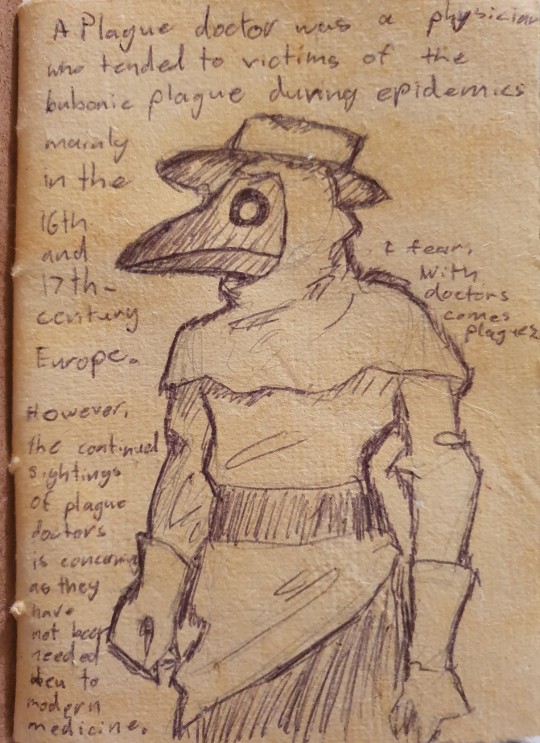 A Plague doctor was a physician
who tended to victims of the
bubonic plague during epidemics
mainly
in the
16th
and
17th-
century
Europe.
However,
the continued
sightings
of plague
doctors
is concerning
as they
have
not been
needed
to
modern
medicine.
I fear,
With
doctors
comes
plague